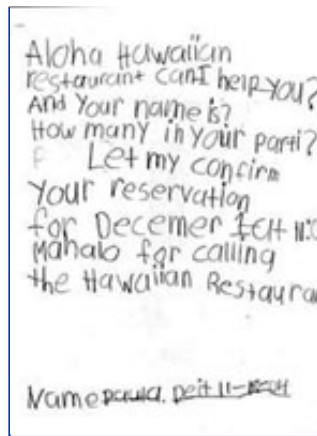 Aloha Hawaiian
restaurant can I help you?
And Your name is?
How many in your parti?
Let my confirm
your reservation
for Decemer
Mahalo for calling
the Hawaiian Restaura
Name